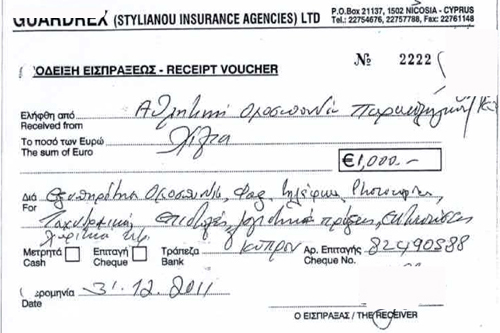 GUARDREX (STYLIANOU INSURANCE AGENCIES) LTD
P.O.Box 21137, 1502 NICOSIA - CYPRUS
Tel.: 22754676, 22757788, Fax: 22761148
ΟΔΕΙΞΗ ΕΙΣΠΡΑΞΕΩΣ - RECEIPT VOUCHER
№ 2222
Ελήφθη από
Received from
Αθλητική Ομοσπονδία
Το ποσό των Ευρώ
The sum of Euro
Χίλια
€1,000.-
Διά
For
Ομοσπονδία, Φαξ, τηλέφωνα, Photocopies,
Ταχυδρομικά, επιταγές,
χαρτικά
Μετρητά
Cash
Επιταγή
Cheque
Τράπεζα
Bank
Κύπρου
Αρ. Επιταγής
Cheque No.
82490888
ερομηνία
Date
31.12.2011
Ο ΕΙΣΠΡΑΞΑΣ / THE RECEIVER